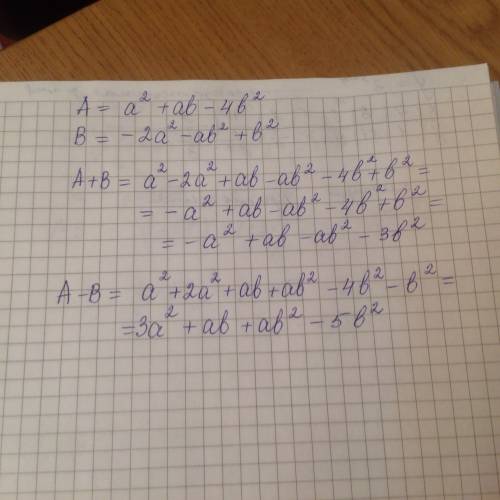 A = a² + ab - 4b²
B = -2a² - ab² + b²
A+B = a² - 2a² + ab - ab² - 4b² + b² =
= -a² + ab - ab² - 4b² + b² =
= -a² + ab - ab² - 3b²
A-B = a² + 2a² + ab + ab² - 4b² - b² =
= 3a² + ab + ab² - 5b²